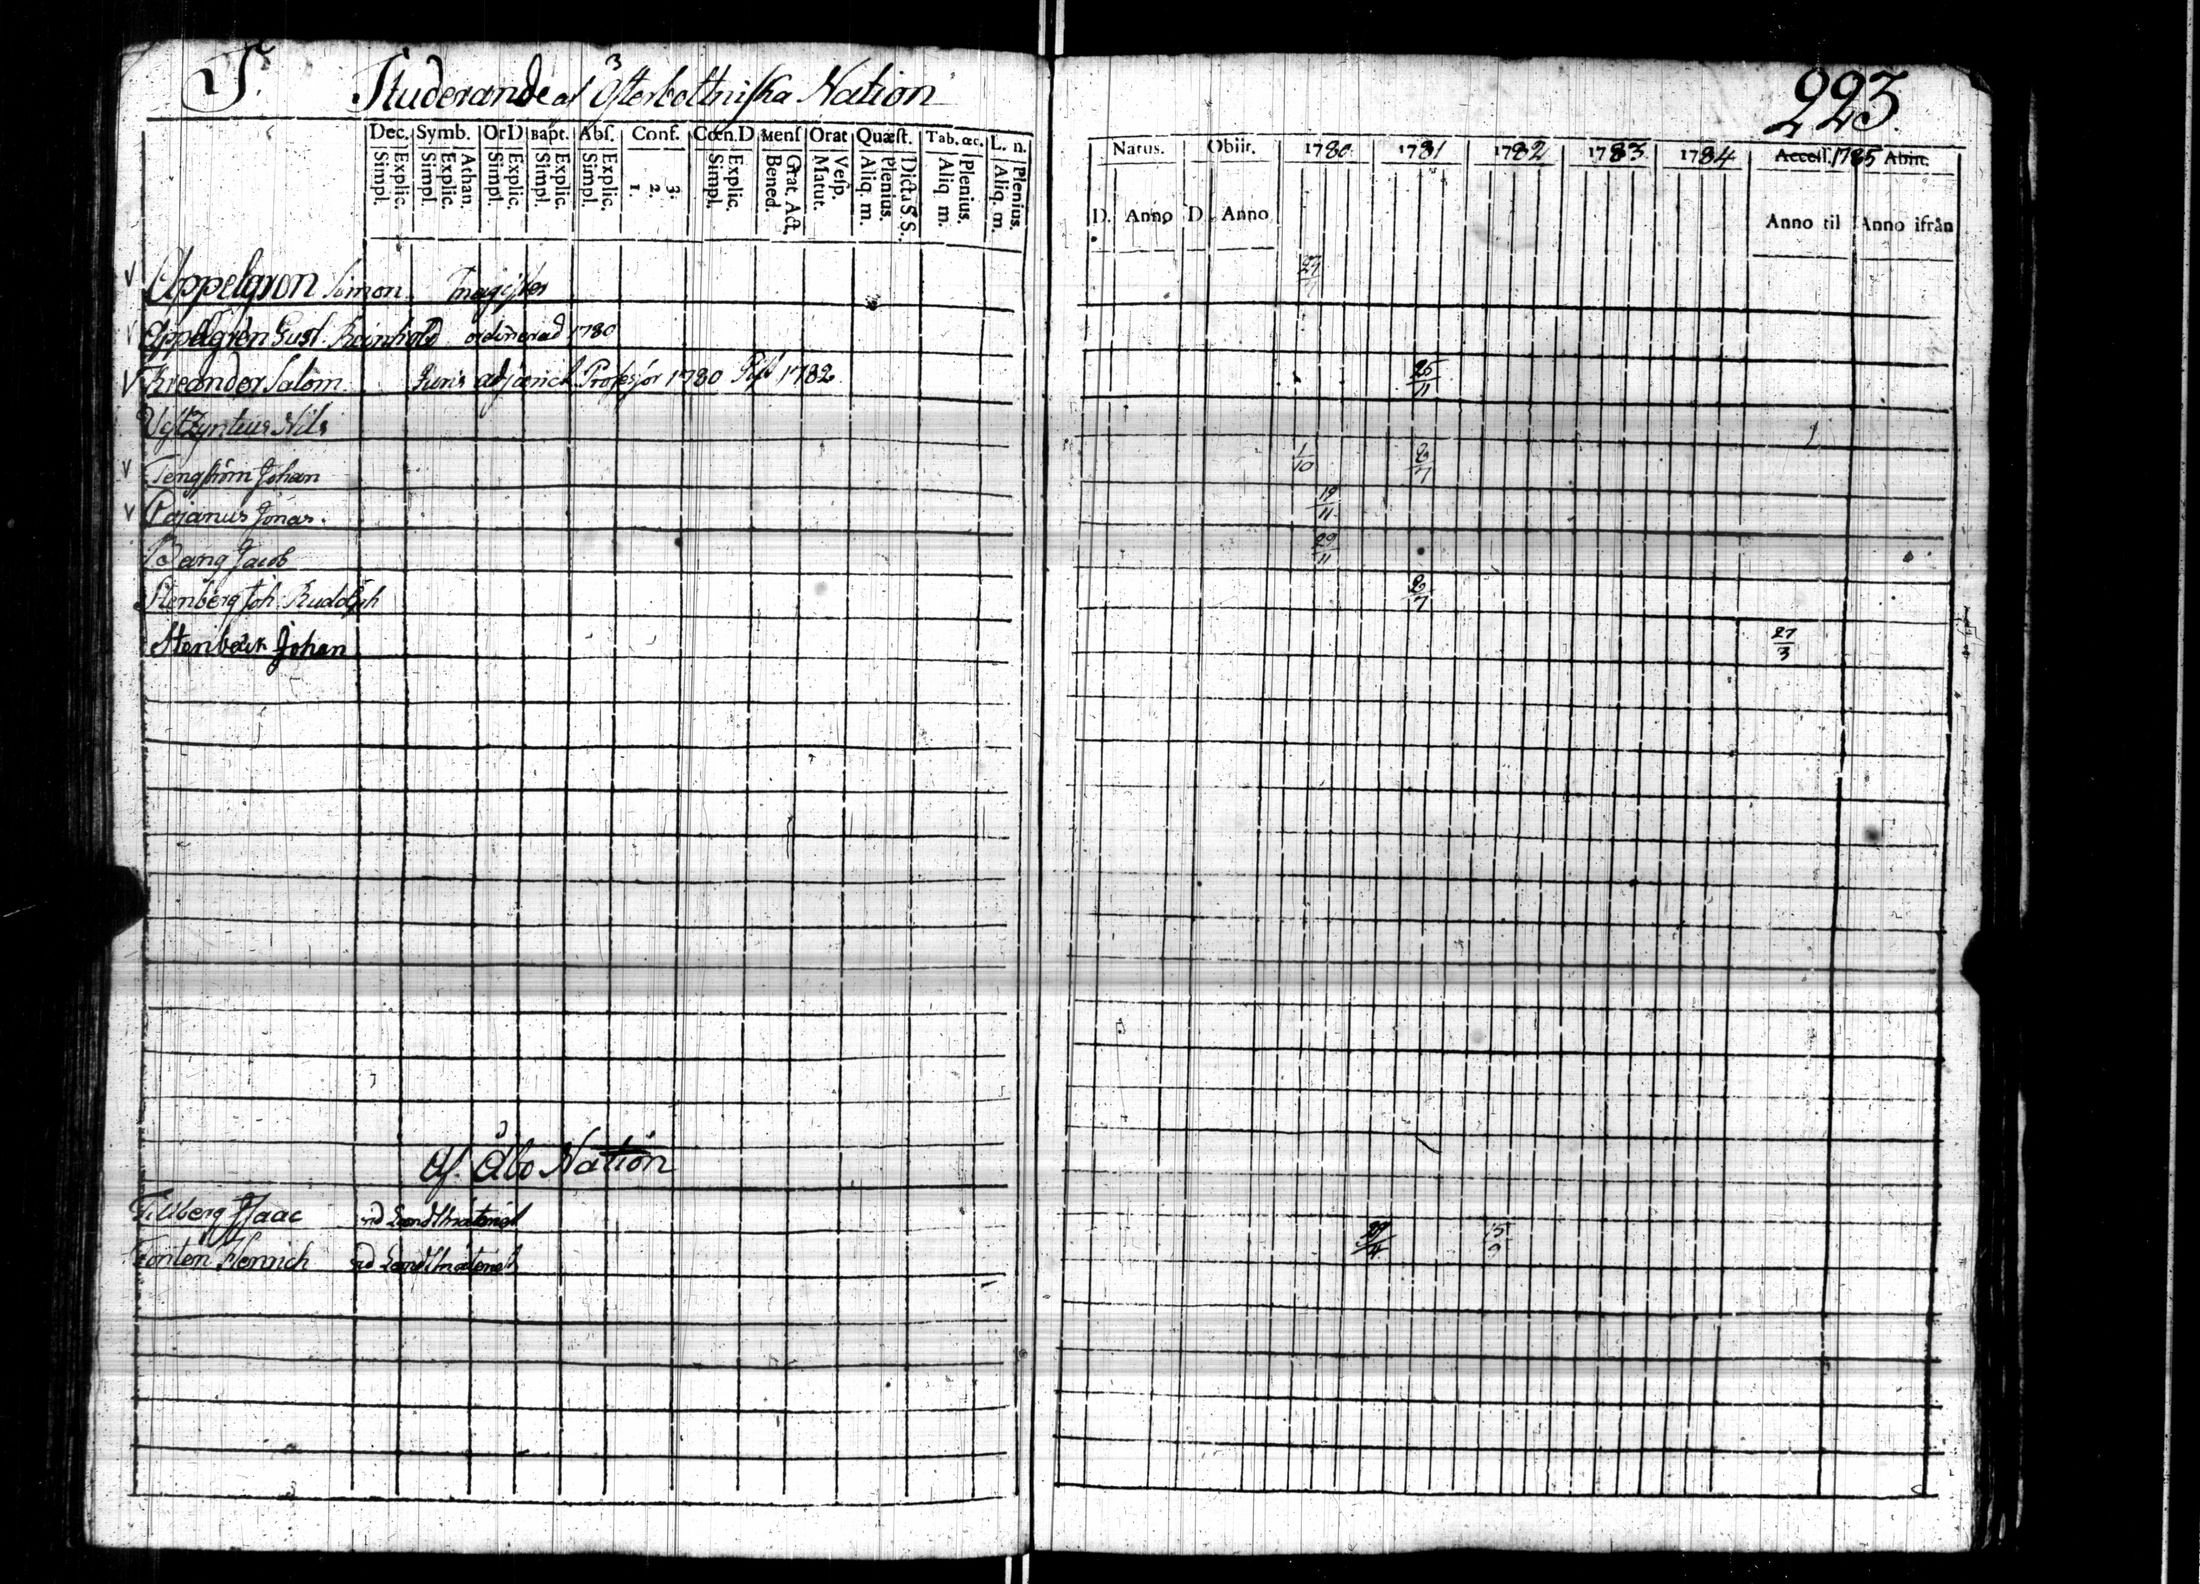 S. Studerande af Österbottniska Nation
223.
Dec. Symb. Or D Bapt. Abs. Conf. Cœn.D Mens Orat Quæst. Tab. œc. L. n.
Simpl. Explic. Simpl. Explic. Athan. Simpl. Explic. Simpl. Explic. Simpl. Explic. 1. 2. 3. Simpl. Explic. Bened. Grat. Act. Matut. Vesp. Aliq. m. Plenius. Dicta S S. Aliq. m. Plenius. Aliq. m. Plenius.
Natus. Obiit. 1780 1781 1782 1783 1784 Access. 1785 Abiit.
D. Anno D. Anno Anno til Anno ifrån
Appelgren Simon magister 27/7
Appelgren Gust. Reinhold ordinerad 1780
Kreander Salom. Juris Professor 1780 1782 25/11
Nils
Tengström Johan 1/10 2/7
Cajanus Jonas. 19/11
Bang Jacob 29/11
Stenberg Joh. Rudolph 2/7
Stenbeck Johan 27/3
Af Åbo Nation
Tillberg Isaac vid Landtmäteriet
Henrich vid Landtmäteriet